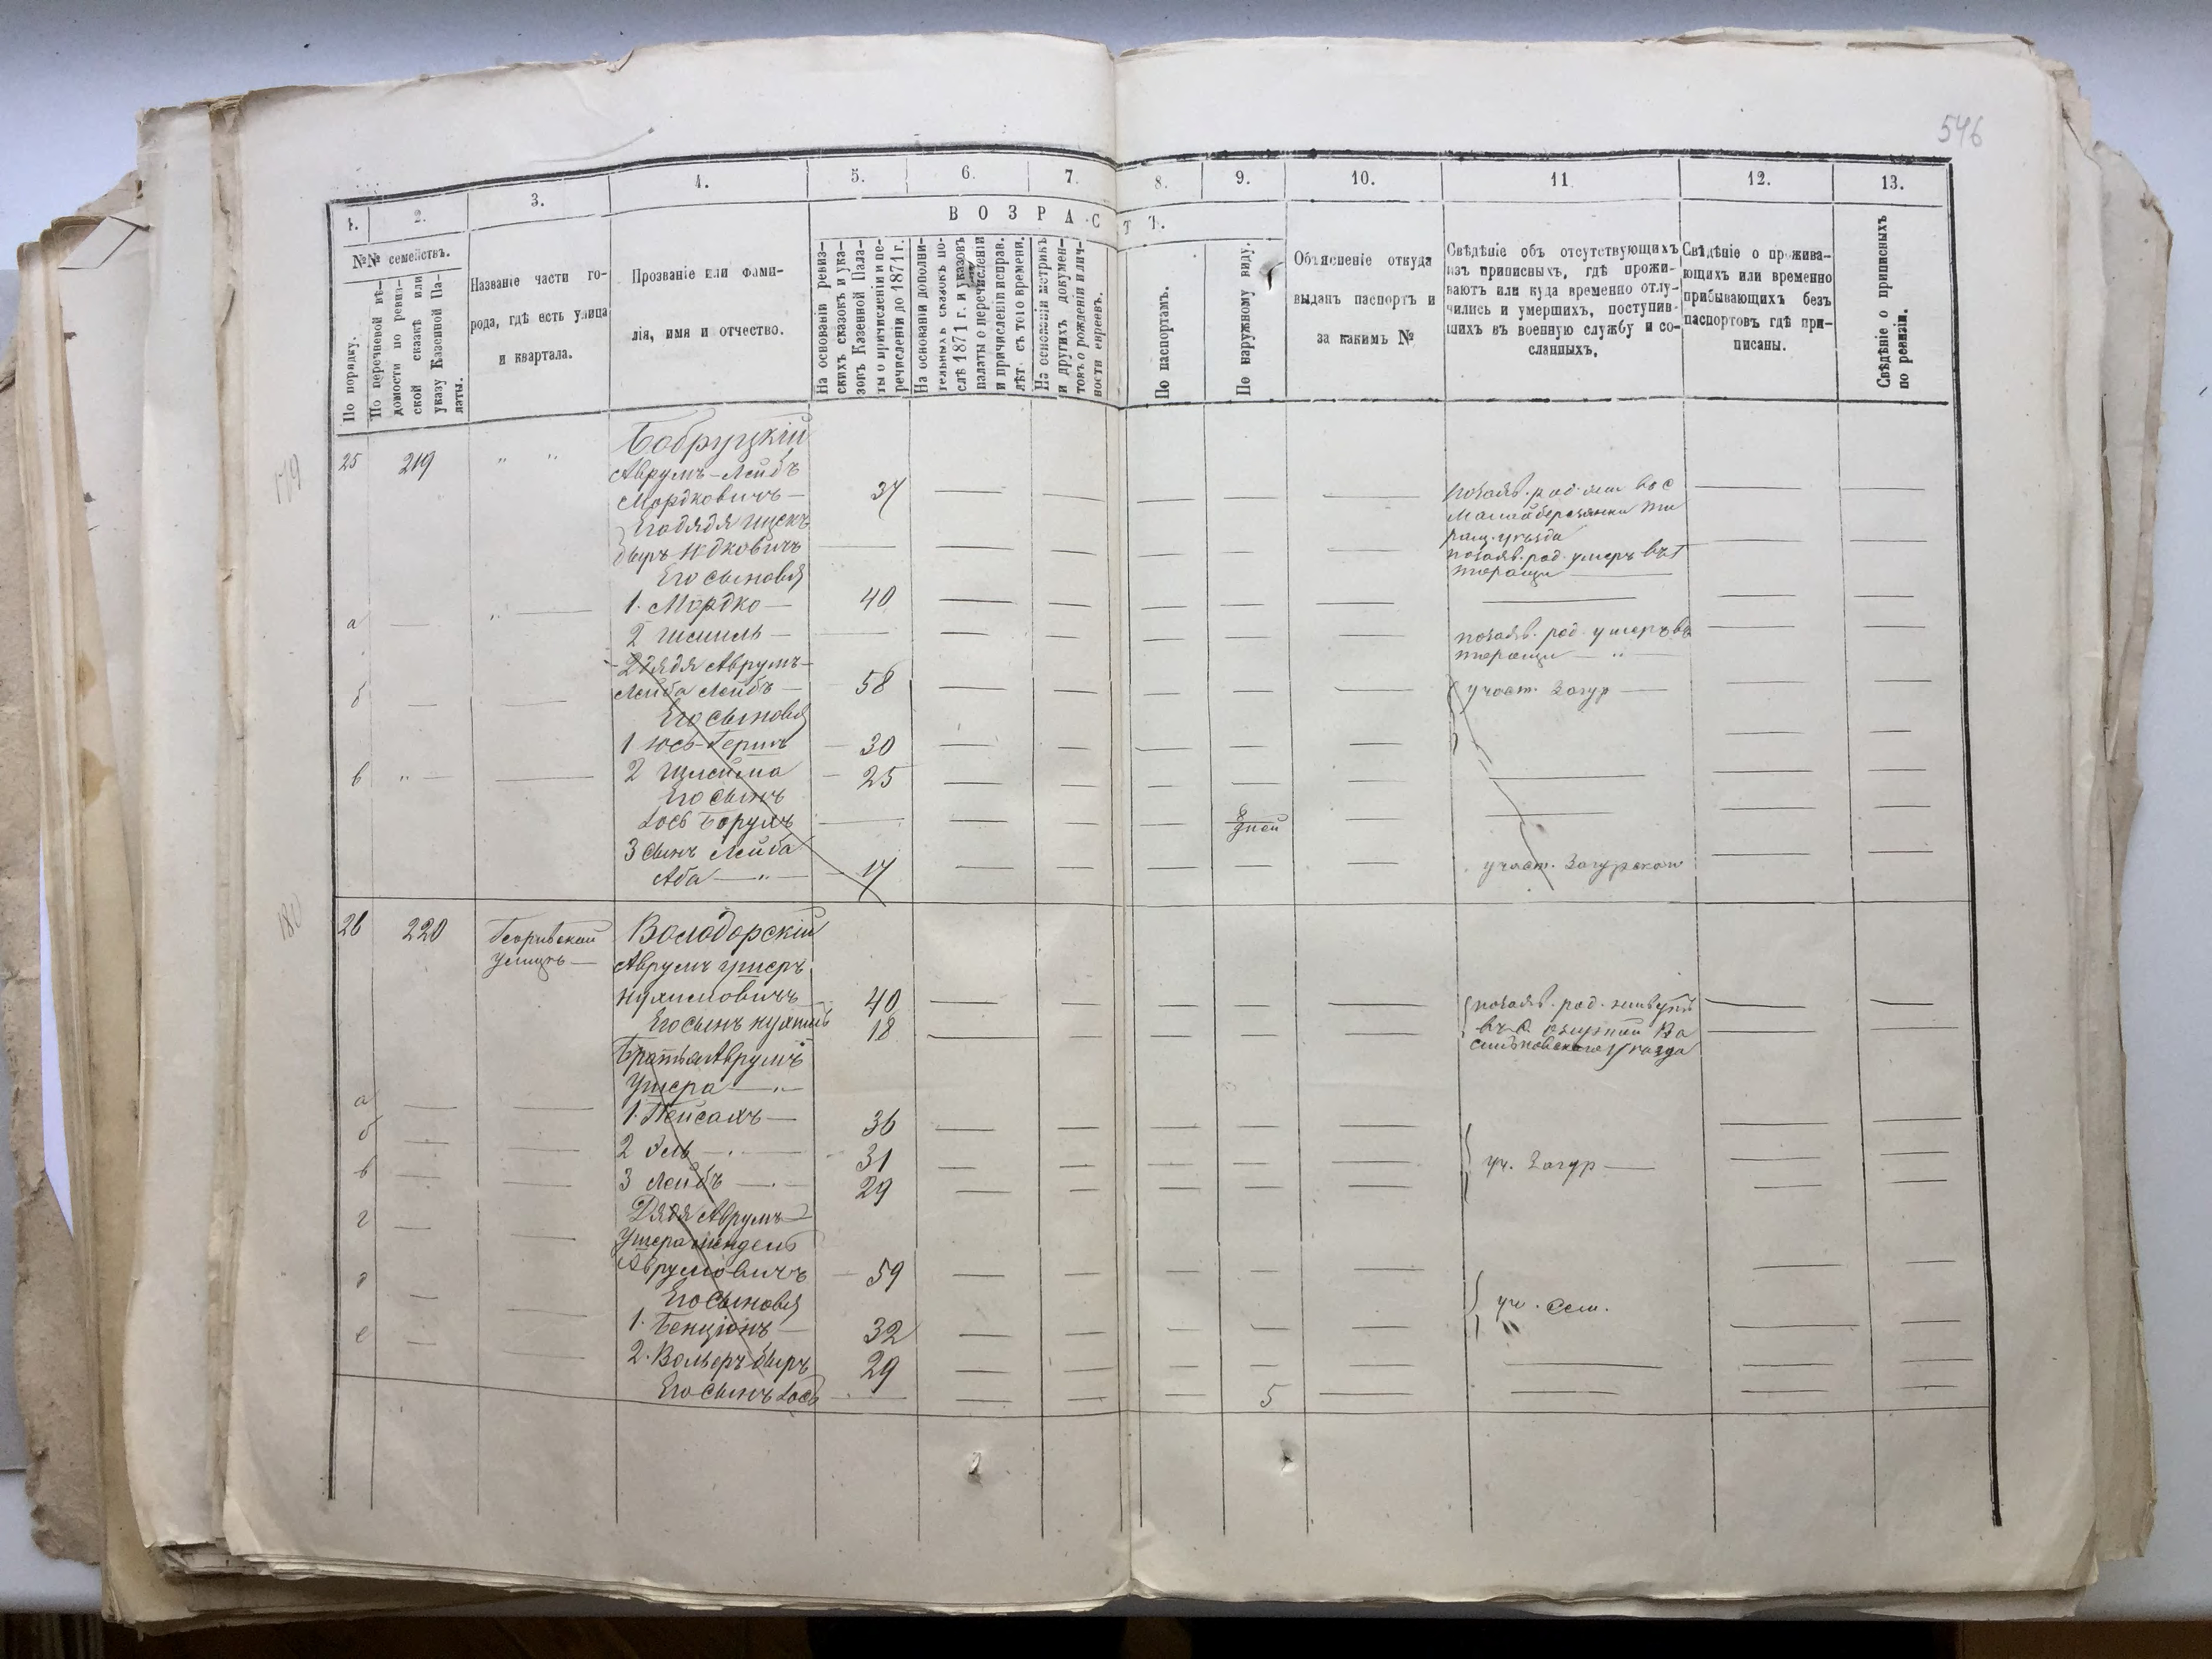 546
1.
2.
3.
4.
5.
6.
7.
8.
9.
10.
11
12.
13.
ВОЗРАСТЪ.
№№ семействъ.
По порядку.
По перечневой вѣ-
домости по ревиз-
ской сказкѣ или
указу Казенной Па-
латы.
Названіе части го-
рода, гдѣ есть улица
и квартала.
Прозваніе или фами-
лія, имя и отчество.
На основаніи ревиз-
скихъ сказокъ и ука-
зовъ Казенной Пала-
ты о причисленіи и пе-
речисленіи до 1871 г.
На основаніи дополни-
тельныхъ сказокъ по-
слѣ 1871 г. и указовъ
палаты о перечисленіи
и причисленіи исправ.
лѣт. съ того времени.
На основаніи метрикъ
и другихъ докумен-
товъ о рожденіи и лич-
ности евреевъ.
По паспортамъ.
По наружному виду.
Объясненіе откуда
выданъ паспортъ и
за какимъ №
Свѣдѣніе объ отсутствующихъ
изъ приписныхъ, гдѣ прожи-
ваютъ или куда временно отлу-
чились и умершихъ, поступив-
шихъ въ военную службу и со-
сланныхъ.
Свѣдѣніе о прожива-
ющихъ или временно
прибывающихъ безъ
паспортовъ гдѣ при-
писаны.
Свѣдѣніе о приписныхъ
по ревизіи.
179
25 219 " " Бобруцкій
Аврумъ-Лейбъ
Мордковичъ — 37 позаяв. род.
Его дядя Ицекъ
Беръ Идковичъ позаяв. род. умеръ въ
Его сыновья
а 1. Мордко — 40
2 Шмиль — позаяв. род. умеръ въ
2 дядя Аврумъ-
б Лейба Лейбъ — 58 участ. Загур
Его сыновья
1 Юсь-Гершъ 30
в 2 Шлейма 25
Его сынъ
Іось Борухъ 8 дней
3 сынъ Лейба
Аба — " — 17 участ. Загурскаго
180
26 220 улицѣ — Володарскій
Аврумъ Ушеръ
Нухимовичъ 40 позаяв. род. живутъ
Его сынъ Нухимъ 18
уѣзда
Братья Аврумъ
Ушера — " —
а 1. Пейсахъ — 36
б 2 Эль — 31 уч. Загур —
в 3 Лейбъ — 29
Дядя Аврумъ
г Ушера Мендель
Аврумовичъ 59
Его сыновья уч. Сем.
д 1. Бенціонъ — 32
е 2. Вольфъ Беръ 29
Его сынъ Іось 5